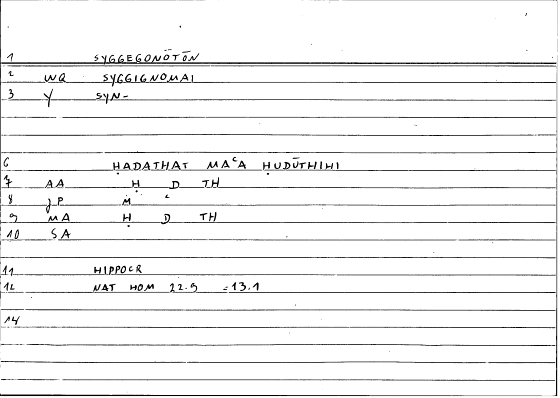 1 SYGGEGONŌTŌN
2 WQ SYGGIGNOMAI
3 Y SYN-
6 ḤADATHAT MAʿA ḤUDŪTHIHI
7 AA Ḥ D TH
8 JP M ʿ
9 MA Ḥ D TH
10 SA
11 HIPPOCR
12 NAT HOM 22.9 =13.1
14